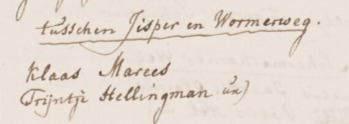 tusschen Jisper en Wormerweg.
Klaas Marees
Trijntje Hellingman ux)